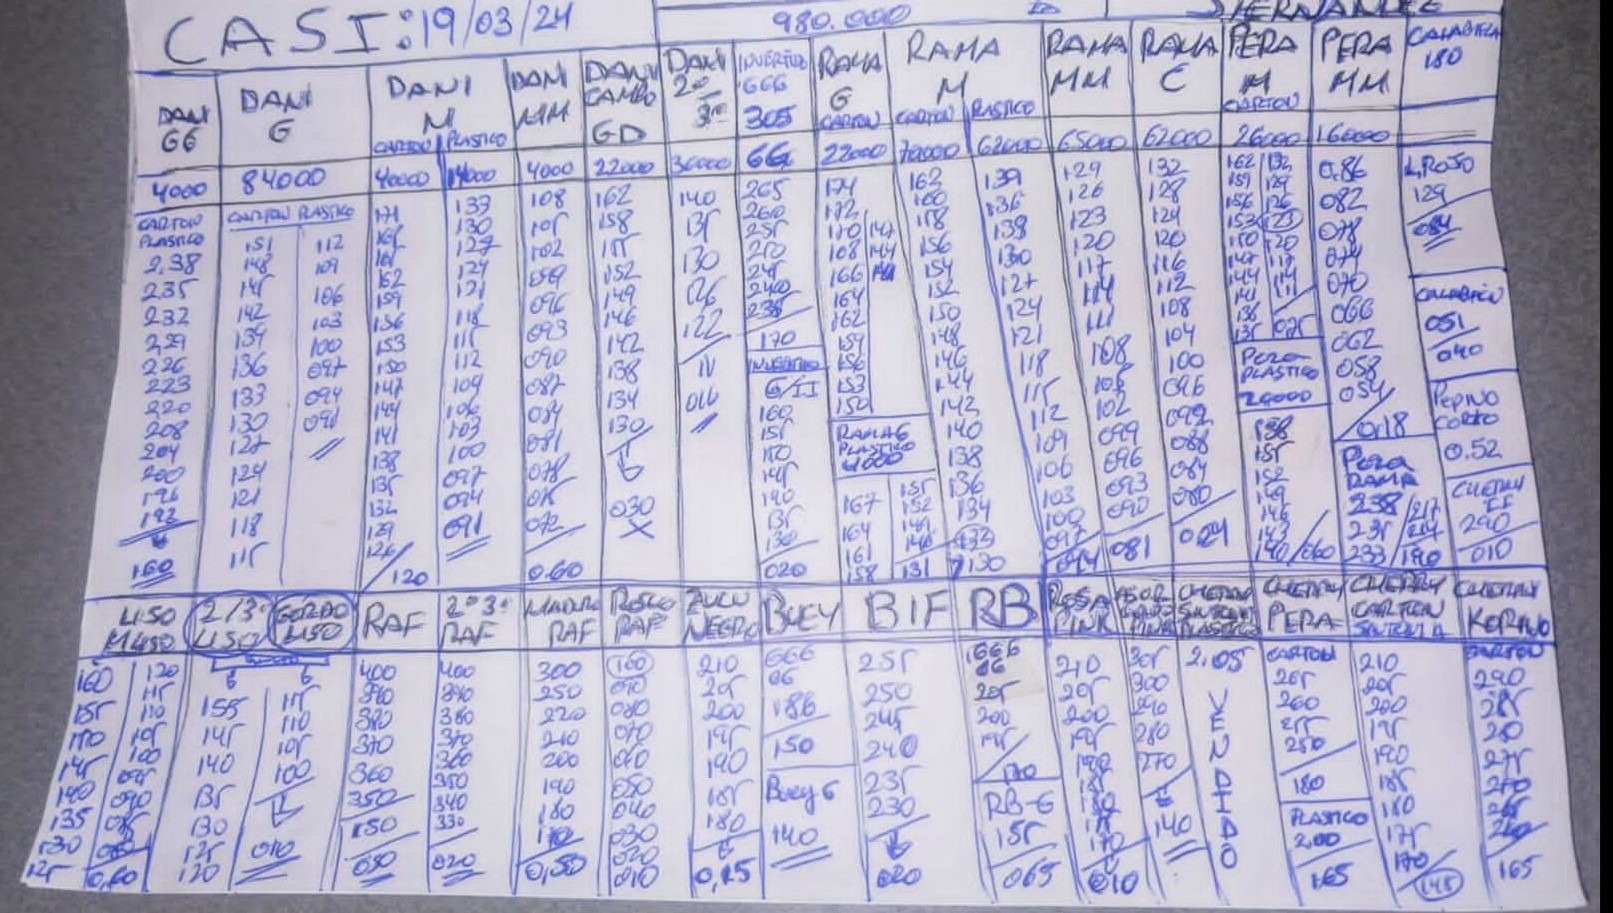 CASI: 19/03/24
980.000
DANI GG
4000
CARTON
PLASTICO
2,38
235
232
229
226
223
220
208
204
200
196
192
160
DANI G
84000
CARTON PLASTICO
151 112
148 109
145 106
142 103
139 100
136 097
133 094
130 091
127
124
121
118
115
DANI M
CARTON PLASTICO
40000 14000
171 133
130
127
162 124
159 121
156 118
153 115
150 112
147 109
144 106
141 103
138 100
135 097
132 094
129 091
126
120
DANI MM
4000
108
105
102
099
096
093
090
087
084
081
078
075
072
0.60
DANI CAMBO GD
22000
162
158
155
152
149
146
142
138
134
130
030
DANI 2ª 3ª
36000
140
135
130
126
122
11
016
INVERTIDO
666
305
66
265
260
255
250
245
240
235
170
INVERTIDO
G/II
160
155
150
145
140
135
130
020
RAMA G
CARTON
22000
174
172
170 147
168 144
166 141
164
162
159
156
153
150
RAMA G
PLASTICO
4000
167 155
164 152
161 149
158 146
131
RAMA M
CARTON PLASTICO
70000 62000
162 139
160 136
158 133
156 130
154 127
152 124
150 121
148 118
146 115
144 112
142 109
140 106
138 103
136 100
134 097
132 094
130
RAMA MM
65000
129
126
123
120
117
114
111
108
105
102
099
096
093
090
081
RAMA C
62000
132
128
124
120
116
112
108
104
100
096
092
088
084
080
024
PERA M
CARTON
26000
162 132
159 129
156 126
153 123
150 120
147 117
144 114
141 111
138
135 075
Pera
PLASTICO
24000
158
155
152
149
146
143
140/060
PERA MM
16000
0.86
082
078
074
070
066
062
058
054
0,18
Pera
RAMA
238 217
235 214
233 190
CALABAZA
180
L, ROJO
129
084
CALABACIN
051
040
PEPINO
CORTO
0.52
CHERRY
290
010
LISO
M LISO
160 120
155 115
150 110
145 105
140 100
135 095
130 090
125 085
0,60
2/3ª
LISO
155
145
140
135
130
125
120
GORDO
LISO
115
110
105
100
010
RAF
400
390
380
370
360
350
150
050
2ª 3ª
RAF
400
390
380
370
360
350
340
330
020
MADUR
RAF
300
250
220
210
200
190
180
170
0,50
ROSCO
RAF
160
090
080
070
060
050
040
030
020
010
ZULU
NEGRO
210
205
200
195
190
185
180
0,25
BUEY
666
66
186
150
Buey G
140
BIF
255
250
245
240
235
230
020
RB
666
66
205
200
195
170
RB-G
155
065
ROSA
PINK
210
205
200
195
190
185
180
175
170
010
305
300
290
280
270
140
CHERRY
PLASTICO
2,05
VENDIDO
CHERRY
PERA
CARTON
265
260
255
250
180
PLASTICO
2,00
165
CHERRY
CARTON
210
205
200
195
190
185
180
175
170
145
CHERRY
KORINO
CARTON
290
285
280
275
270
265
260
165